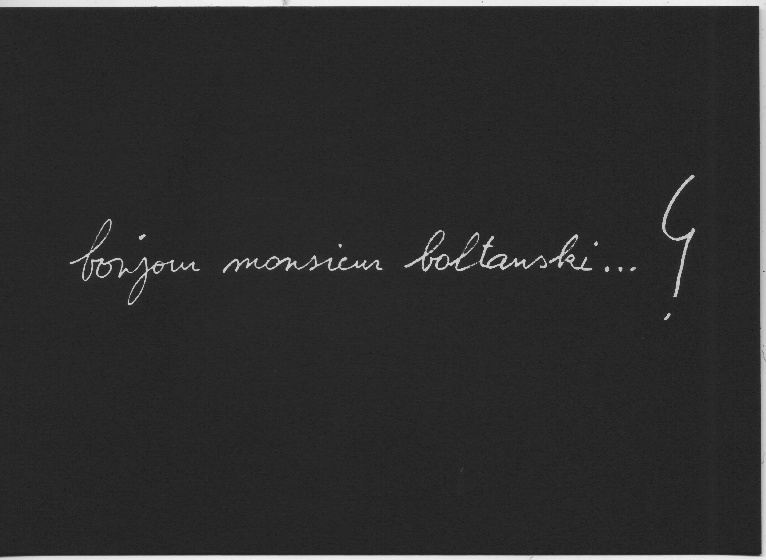 bonjour monsieur boltanski...